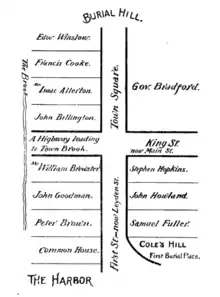 BURIAL HILL.
Edw Winslow.
Francis Cooke.
Mr Isaac Allerton.
John Billington.
The Brook
A Highway leading
to Town Brook.
Mr William Brewster.
John Goodman.
Peter Brown.
Common House.
THE HARBOR
Town Square.
First St.—now Leyden St.
Gov. Bradford.
King St.
now Main St.
Stephen Hopkins.
John Howland.
Samuel Fuller.
COLE'S HILL
First Burial Place.